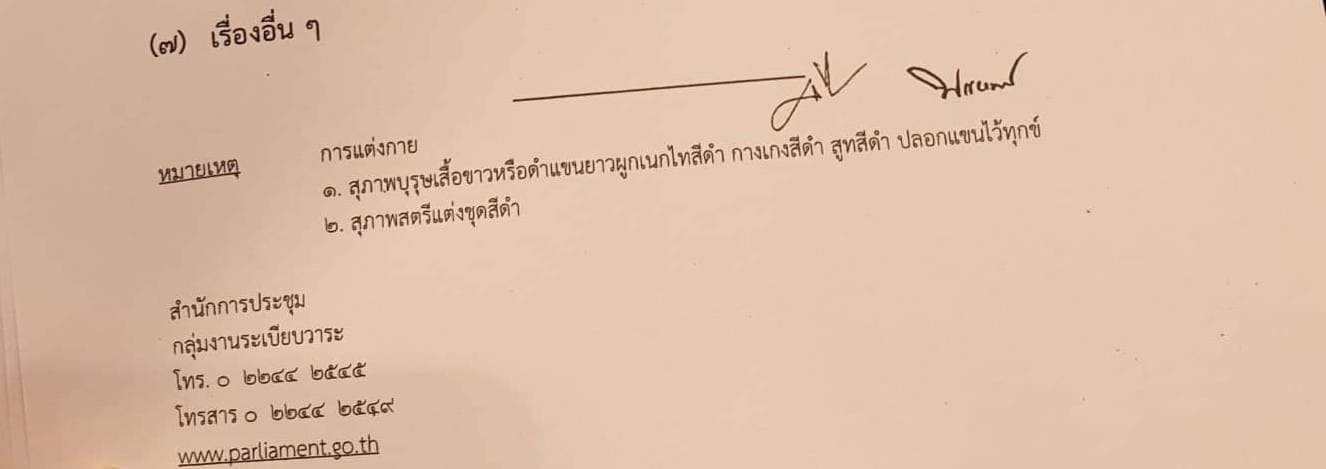 (๗) เรื่องอื่น ๆ
หมายเหตุ การแต่งกาย
๑. สุภาพบุรุษเสื้อขาวหรือดำแขนยาวผูกเนกไทสีดำ กางเกงสีดำ สูทสีดำ ปลอกแขนไว้ทุกข์
๒. สุภาพสตรีแต่งชุดสีดำ
สำนักการประชุม
กลุ่มงานระเบียบวาระ
โทร. ๐ ๒๒๔๔ ๒๕๔๕
โทรสาร ๐ ๒๒๔๔ ๒๕๔๙
www.parliament.go.th